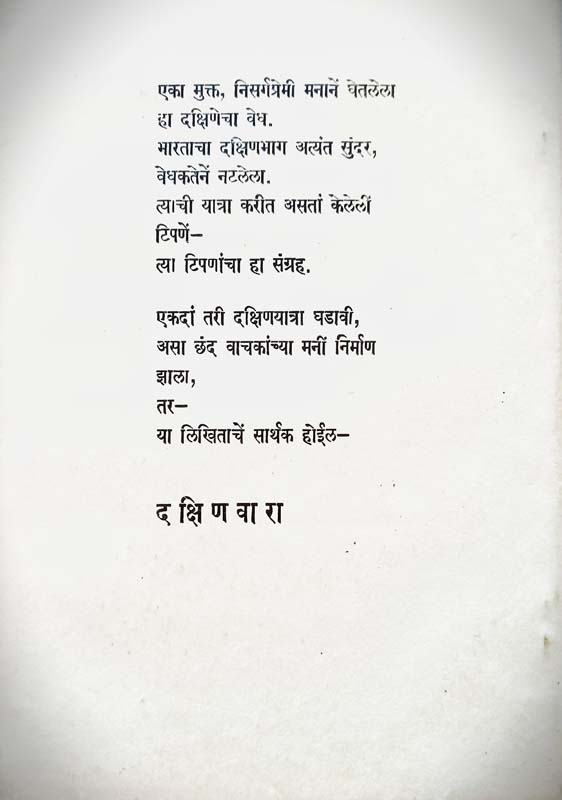 एका मुक्त, निसर्गप्रेमी मनानें घेतलेला
हा दक्षिणेचा वेध.
भारताचा दक्षिणभाग अत्यंत सुंदर,
वेधकतेनें नटलेला.
त्याची यात्रा करीत असतां केलेलीं
टिपणें—
त्या टिपणांचा हा संग्रह.
एकदां तरी दक्षिणयात्रा घडावी,
असा छंद वाचकांच्या मनीं निर्माण
झाला,
तर—
या लिखिताचें सार्थक होईल—
द क्षि ण वा रा